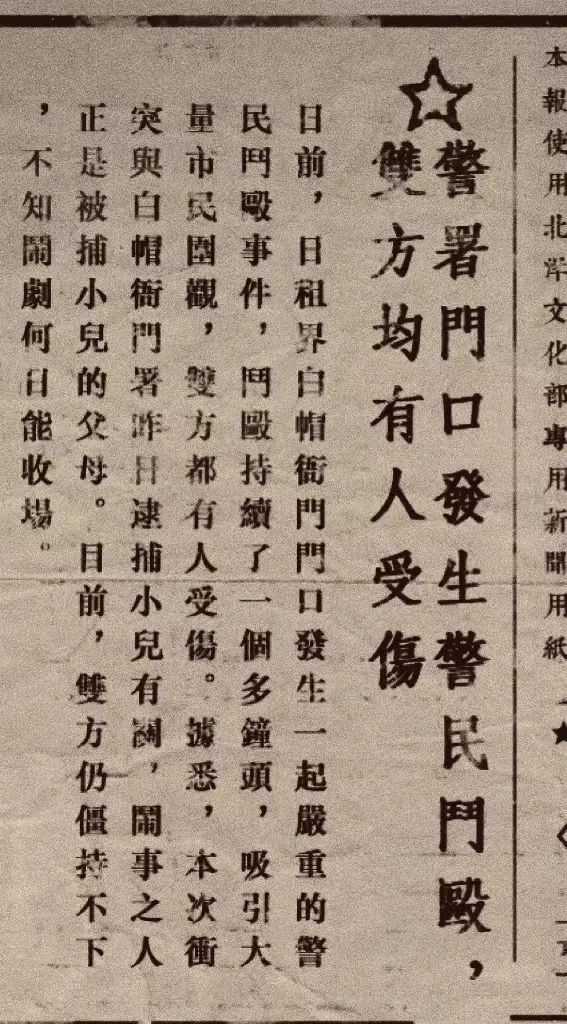 本報使用北洋文化部專用新聞用紙
☆警署門口發生警民鬥毆，
雙方均有人受傷
日前，日租界白帽衙門門口發生一起嚴重的警
民鬥毆事件，鬥毆持續了一個多鐘頭，吸引大
量市民圍觀，雙方都有人受傷。據悉，本次衝
突與白帽衙門署昨日逮捕小兒有關，鬧事之人
正是被捕小兒的父母。目前，雙方仍僵持不下
，不知鬧劇何日能收場。